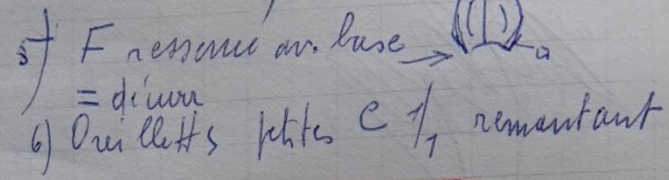 5) F resserré av. base → a
= décurr
6) Oreillettes petites C 1/1 remontant